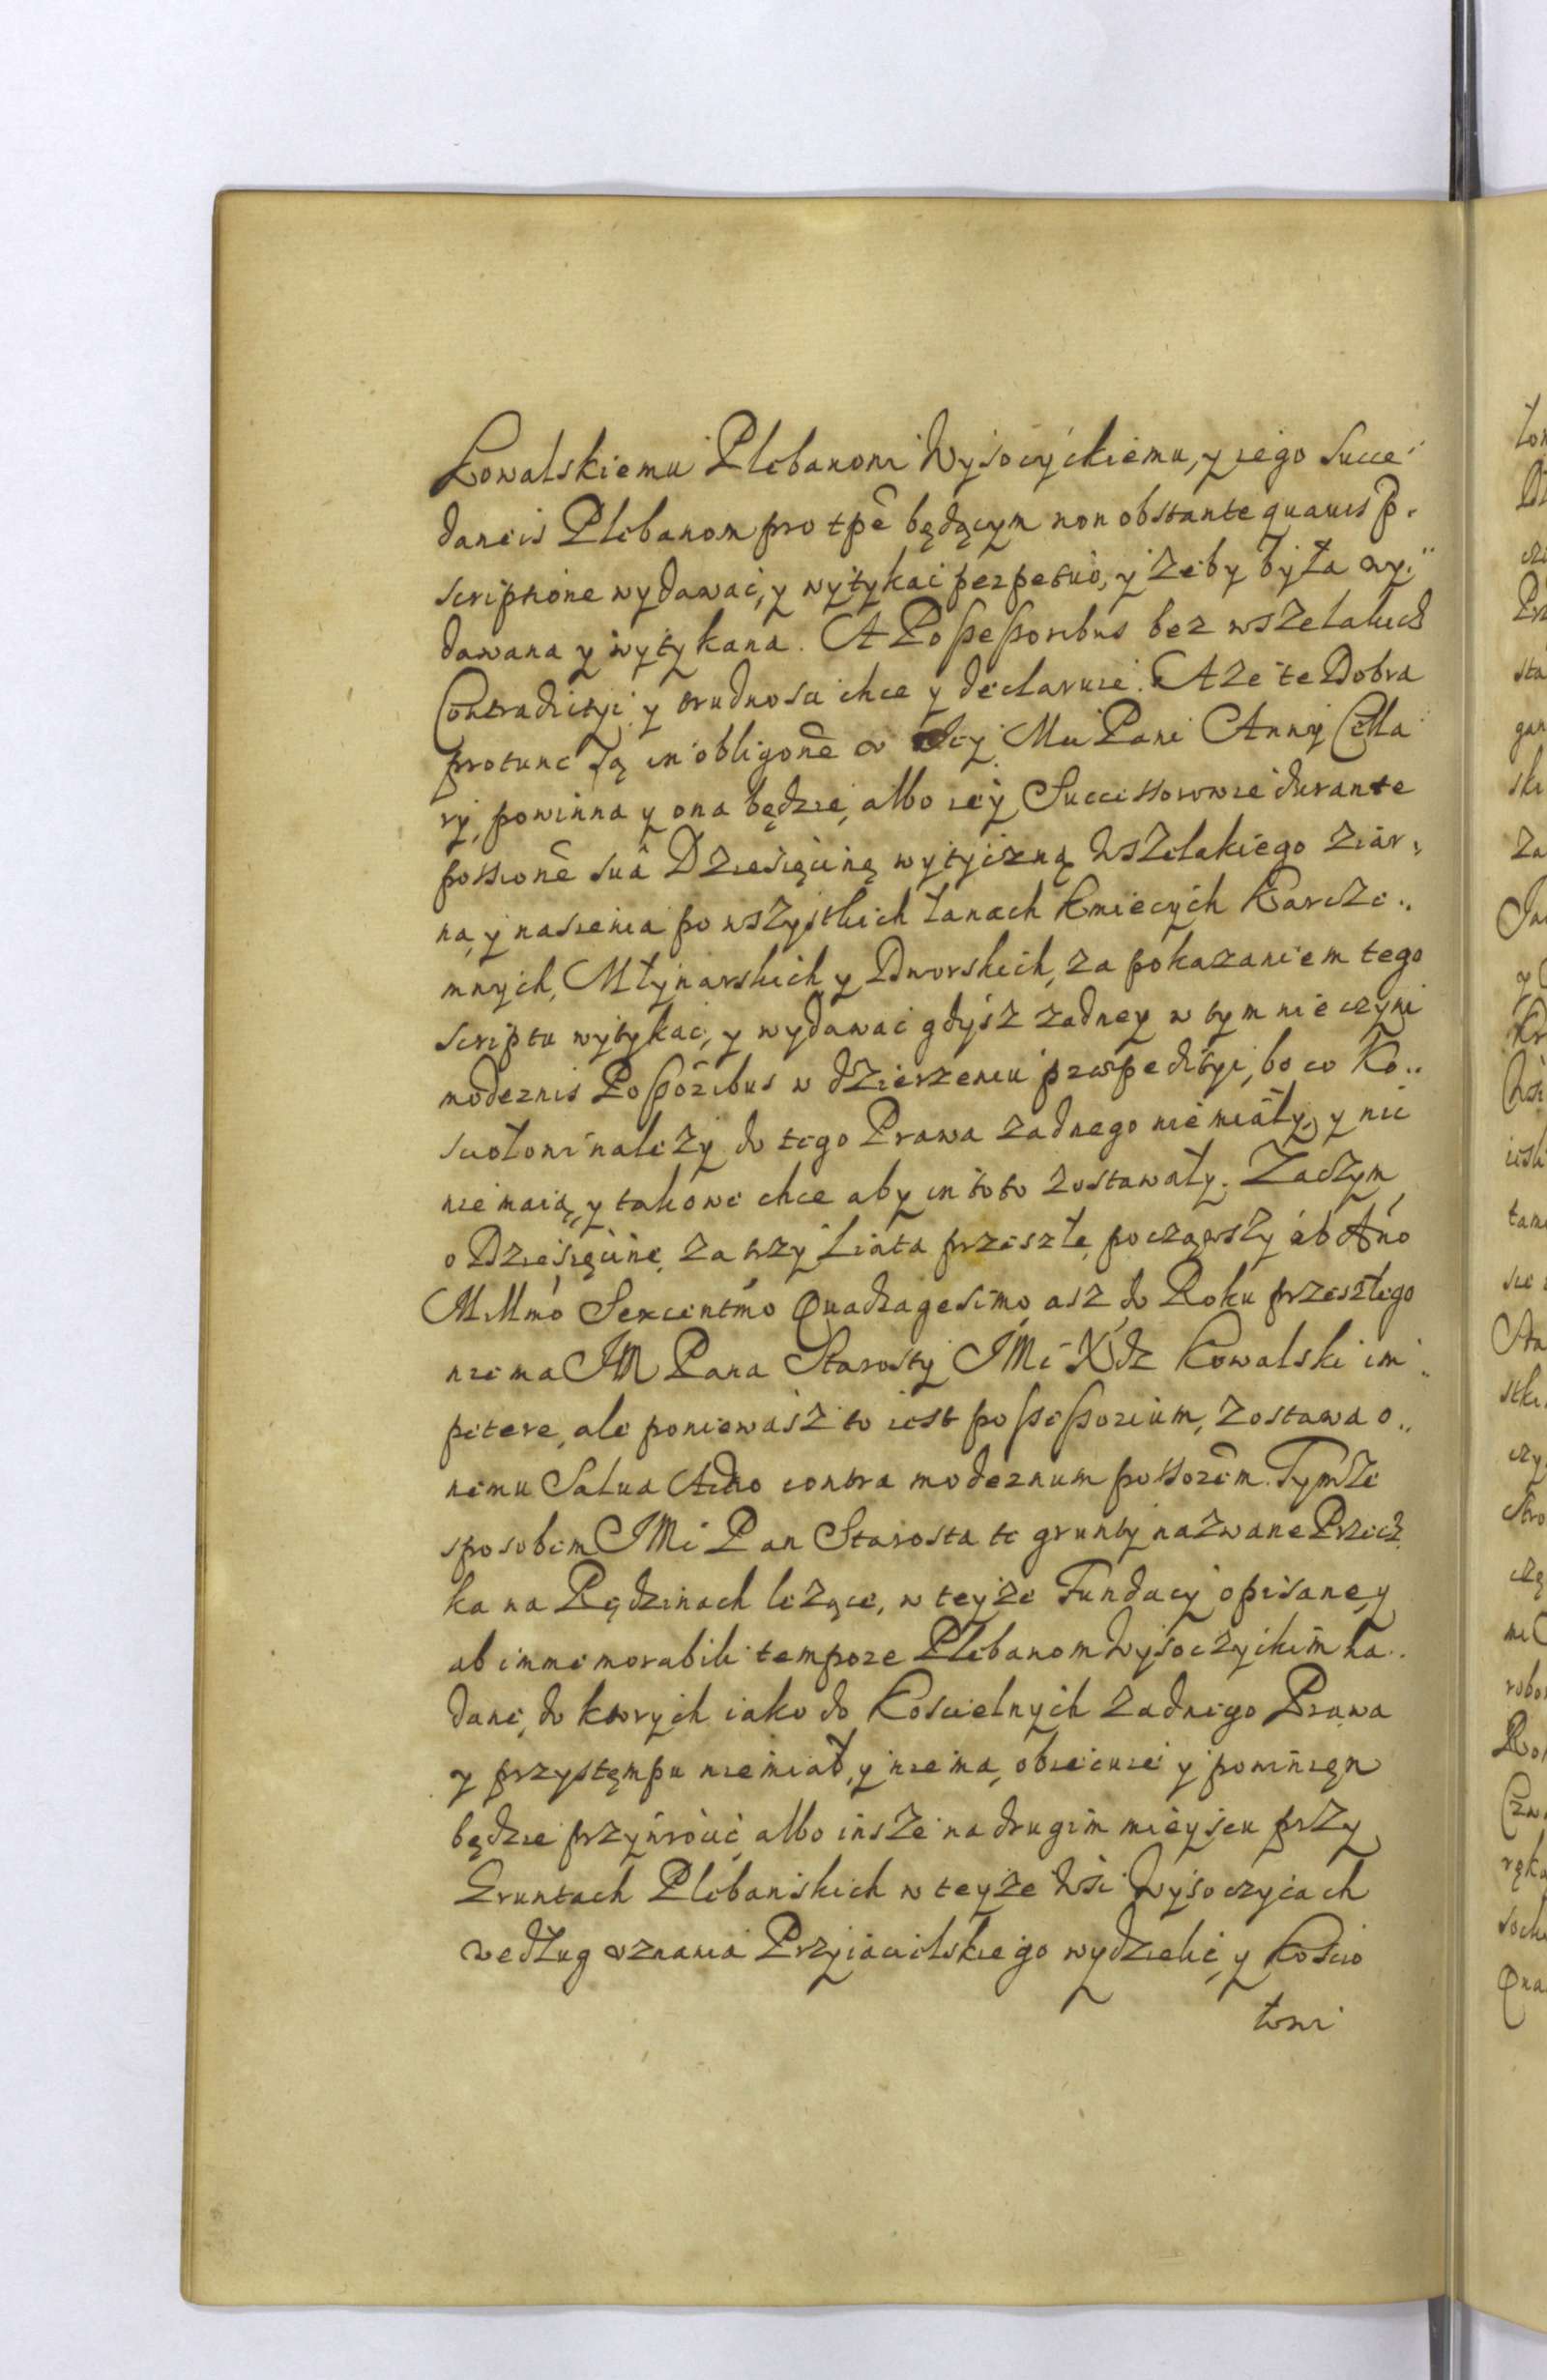 Kowalskiemu Plebanowi Wysocyckiemu, y iego Succe
daneis Plebanom pro tpe będącym non obstante quauis p.
scriptione wydawać, y wytykać perpetuo, y żeby była wy
dawana y wytykana. A Possessoribus bez wszelakich
Contradictyi y trudnosci chce y declaruie. A ze te Dobra
protunc są in obligone v Iey Mci Pani Anny Cella
ry, powinna y ona będzie, albo iey Successorowie durante
possione sua Dziesięcinę wytyczną wszelakiego ziar,
na, y nasienia po wszystkich łanach Kmiecych Karcze..
mnych, Młynarskich y Dworskich, za pokazaniem tego
scriptu wytykać, y wydawać gdysz zadney w tym nie czyni
modernis Possoribus w dzierzeniu praepedityi, bo co Ko..
sciołowi nalezy do tego Prawa zadnego nie miały, y nie
nie maią, y takowe chce aby in toto zostawały. Zaczym
o Dziesięcinę za trzy Liata przeszłe, począwszy ab Ano
Millmo Sexcentmo Quadragesimo, asz do Roku przeszłego
nie ma IM Pana Starosty IMć Xdz Kowalski im..
petere, ale poniewasz to iest possessorium, zostawa o..
nemu Salua Actio contra modernum possorem. Tymże
sposobem IMć Pan Starosta te grunty nazwane Przecz
ka na Pędzinach lezące, w teyze Fundacy opisane, y
ab immemorabili tempore Plebanom Wysoczyckim na..
dane, do ktorych iako do Koscielnych zadnego Prawa
y przystęmpu nie miał, y nie ma, obiecuie y powinięn
będzie przywrocić, albo insze na drugim mieyscu przy
Gruntach Plebanskich w teyze Wsi Wysoczycach
według uznania Przyiacielskiego wydzielić, y Koscio
łowi